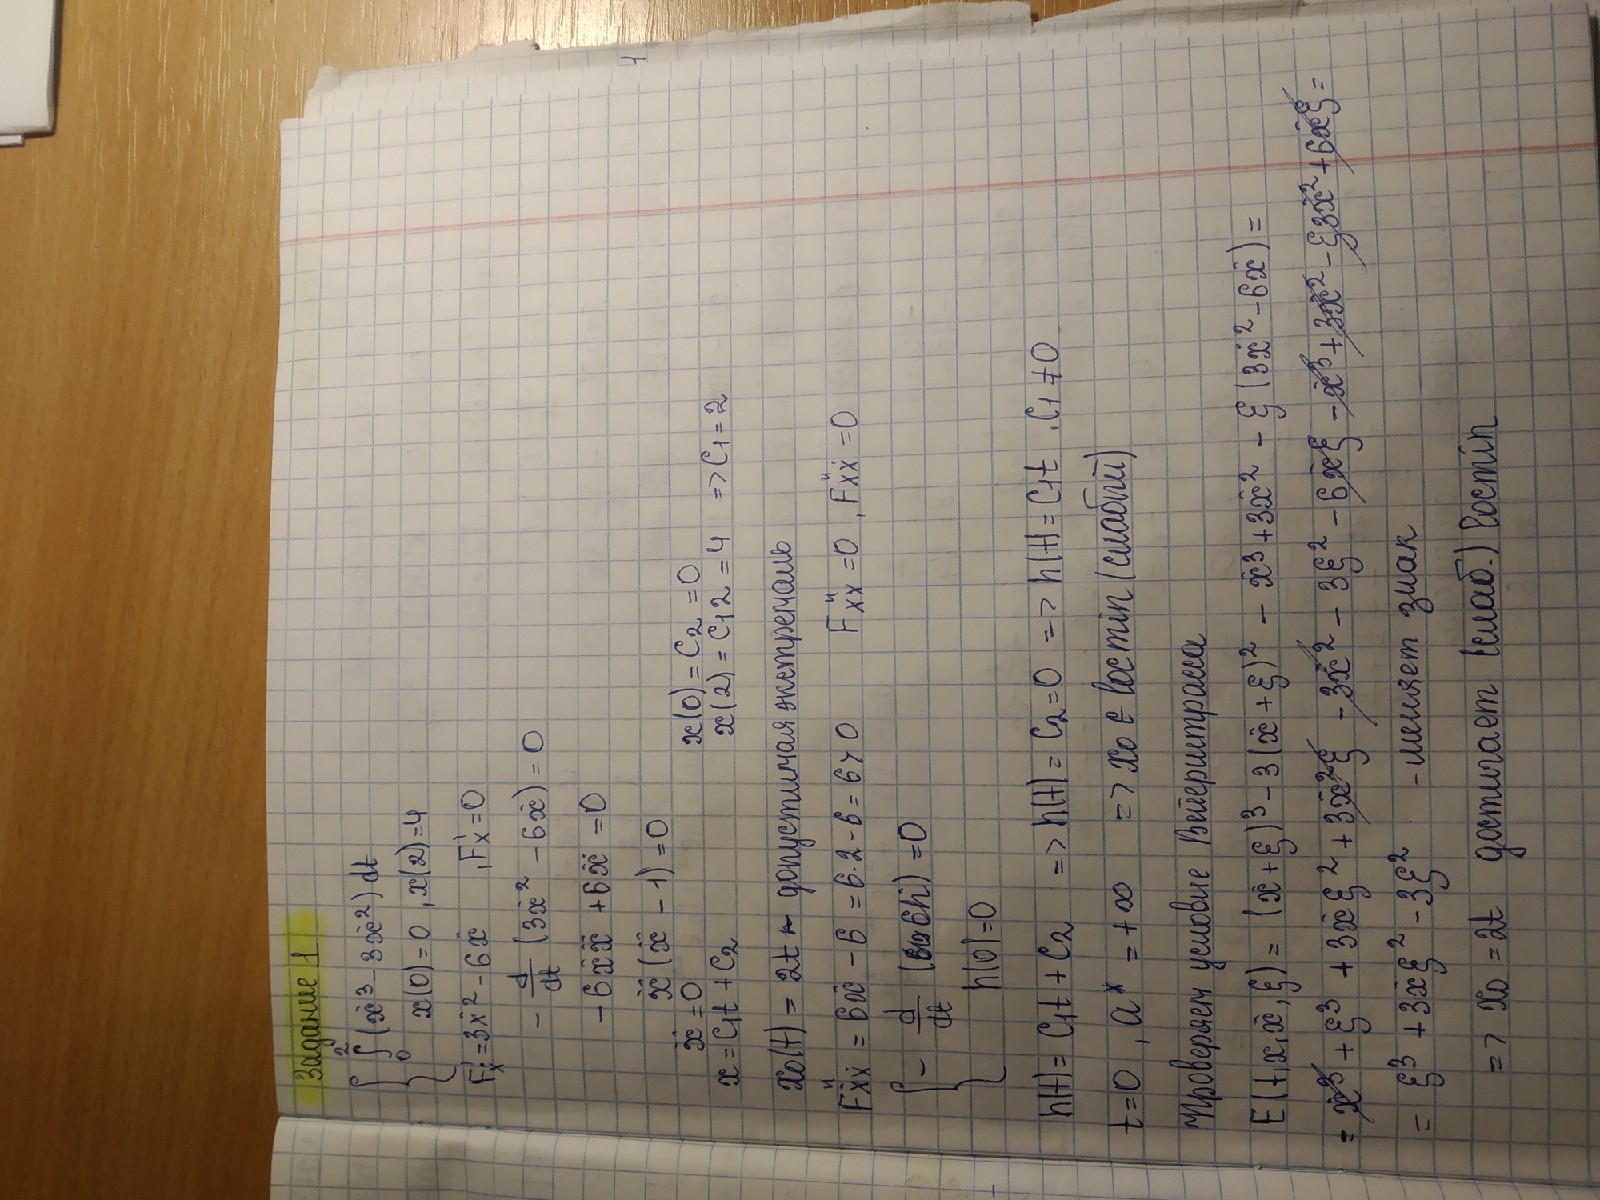 Задание 1
∫₀² (ẋ³ - 3ẋ²) dt
x(0) = 0 , x(2) = 4
F'ẋ = 3ẋ² - 6ẋ , F'x = 0
- d/dt (3ẋ² - 6ẋ) = 0
- 6ẋẍ + 6ẍ = 0
ẍ (ẍ - 1) = 0
ẍ = 0 x(0) = C₂ = 0
x = C₁t + C₂ x(2) = C₁2 = 4 => C₁ = 2
x₀(t) = 2t - допустимая экстремаль
F''ẋẋ = 6ẋ - 6 = 6·2 - 6 = 6 > 0 F''xx = 0 , F''xẋ = 0
- d/dt (6ḣ) = 0
h(0) = 0
h(t) = C₁t + C₂ => h(t) = C₂ = 0 => h(t) = C₁t , C₁ ≠ 0
t = 0 , a* = +∞ => x₀ ∈ locmin (слабый)
Проверяем условие Вейерштрасса
E(t, x, ẋ, ξ) = (ẋ + ξ)³ - 3(ẋ + ξ)² - ẋ³ + 3ẋ² - ξ(3ẋ² - 6ẋ) =
= ẋ³ + ξ³ + 3ẋξ² + 3ẋ²ξ - 3ẋ² - 3ξ² - 6ẋξ - ẋ³ + 3ẋ² - ξ3ẋ² + 6ẋξ =
= ξ³ + 3ẋξ² - 3ξ² - меняет знак
=> x₀ = 2t достигает (слаб.) locmin